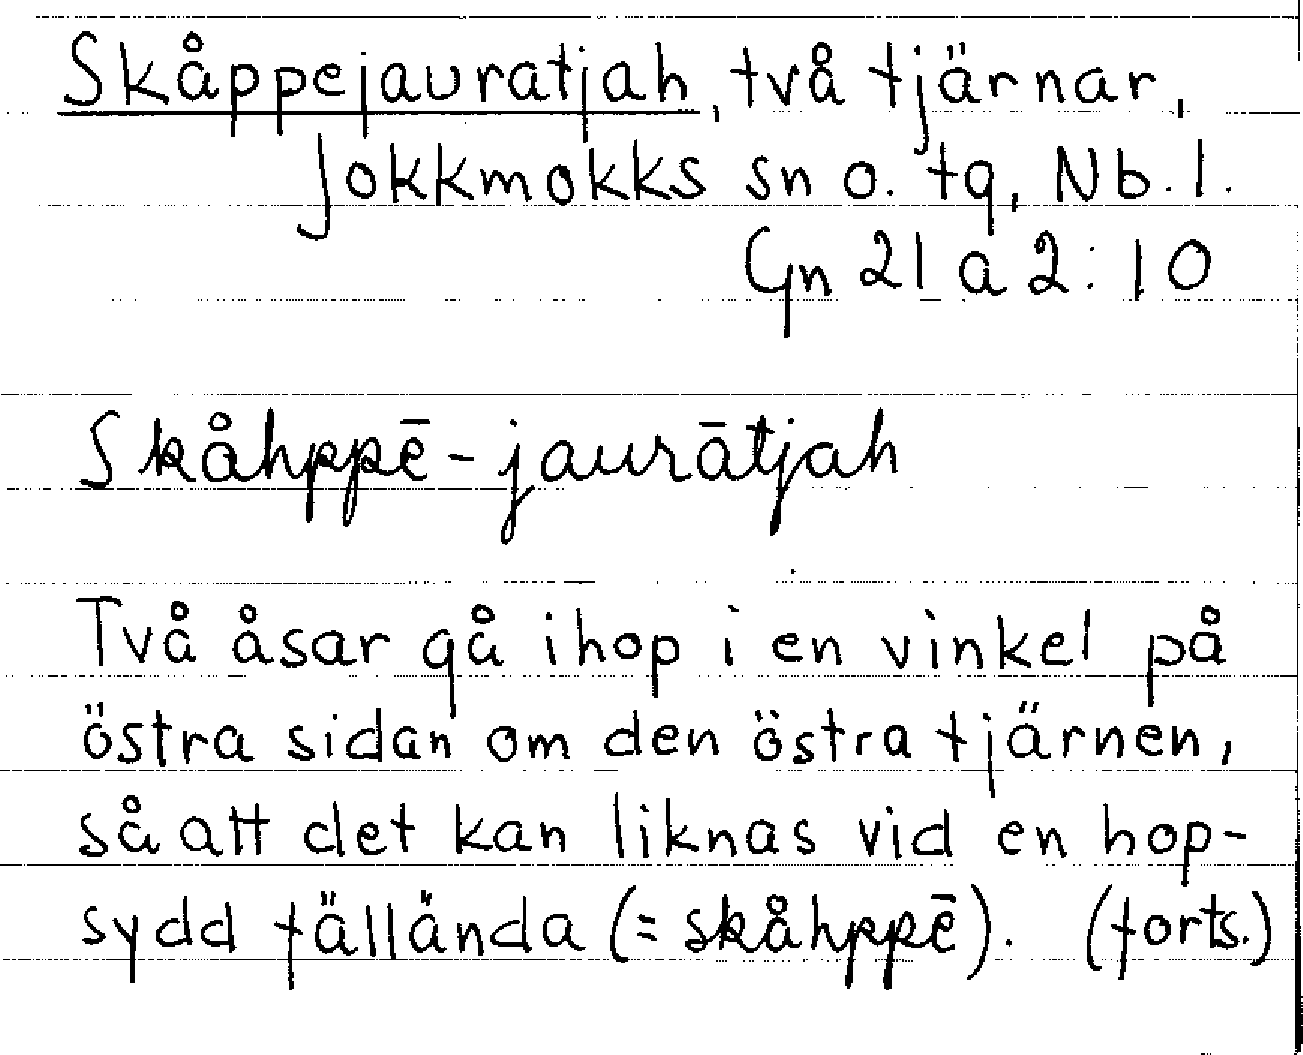 Skåppejauratjah, två tjärnar,
Jokkmokks sn o. tg, Nb. l.
Gn 21 a 2:10
Skåhppē-jaurātjah
Två åsar gå ihop i en vinkel på
östra sidan om den östra tjärnen,
så att det kan liknas vid en hop-
sydd fällända (= skåhppē). (forts.)